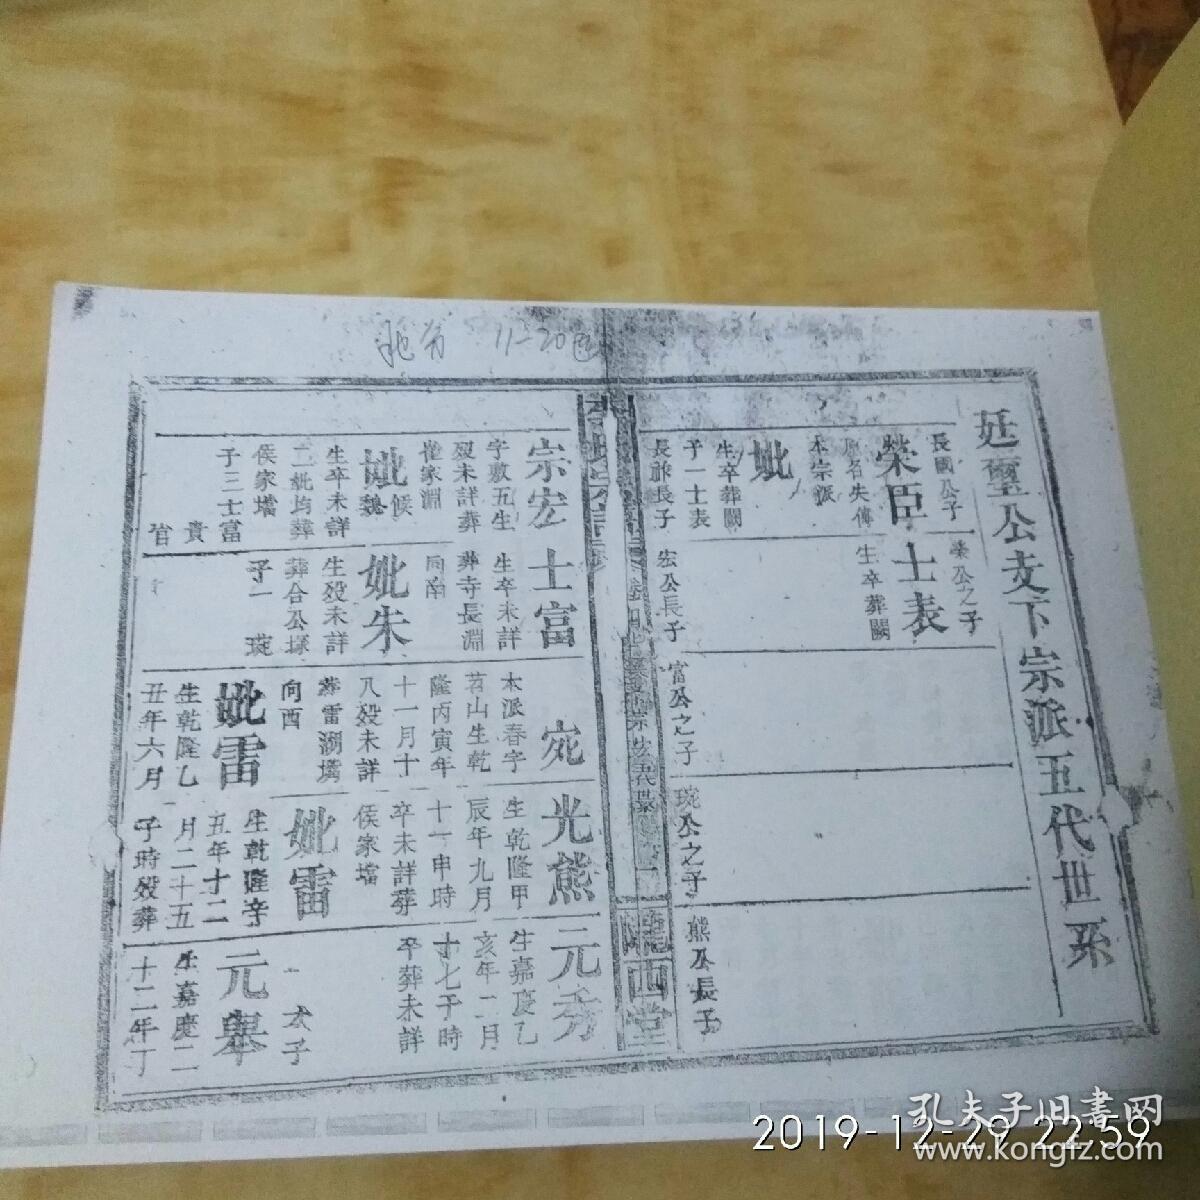 11-20
廷璽公支下宗派五代世系
長國公子
榮臣
原名失傳
本宗派
妣
生卒葬闕
子一士表
長祚長子
榮公之子
士表
生卒葬闕
宏公長子
富公之子
琬公之子
熊公長子
隴西堂
宗宏
字敷五生
歿未詳葬
崔家淵
妣侯魏
生卒未詳
二妣均葬
侯家壋
子三士富
貴
士富
生卒未詳
葬寺長淵
向南
妣朱
生歿未詳
葬合公塚
子一 琬
琬
本派春字
若山生乾
隆丙寅年
十一月十
八歿未詳
葬雷湖壪
向西
妣雷
生乾隆乙
丑年六月
光熊
生乾隆甲
辰年九月
十一申時
卒未詳葬
侯家壋
妣雷
生乾隆辛
五年十二
月二十五
子時歿葬
元秀
生嘉慶乙
亥年二月
十七子時
卒葬未詳
元舉
生嘉慶二
十二年丁
2019-12-29 22:59
孔夫子旧书网
www.kongfz.com